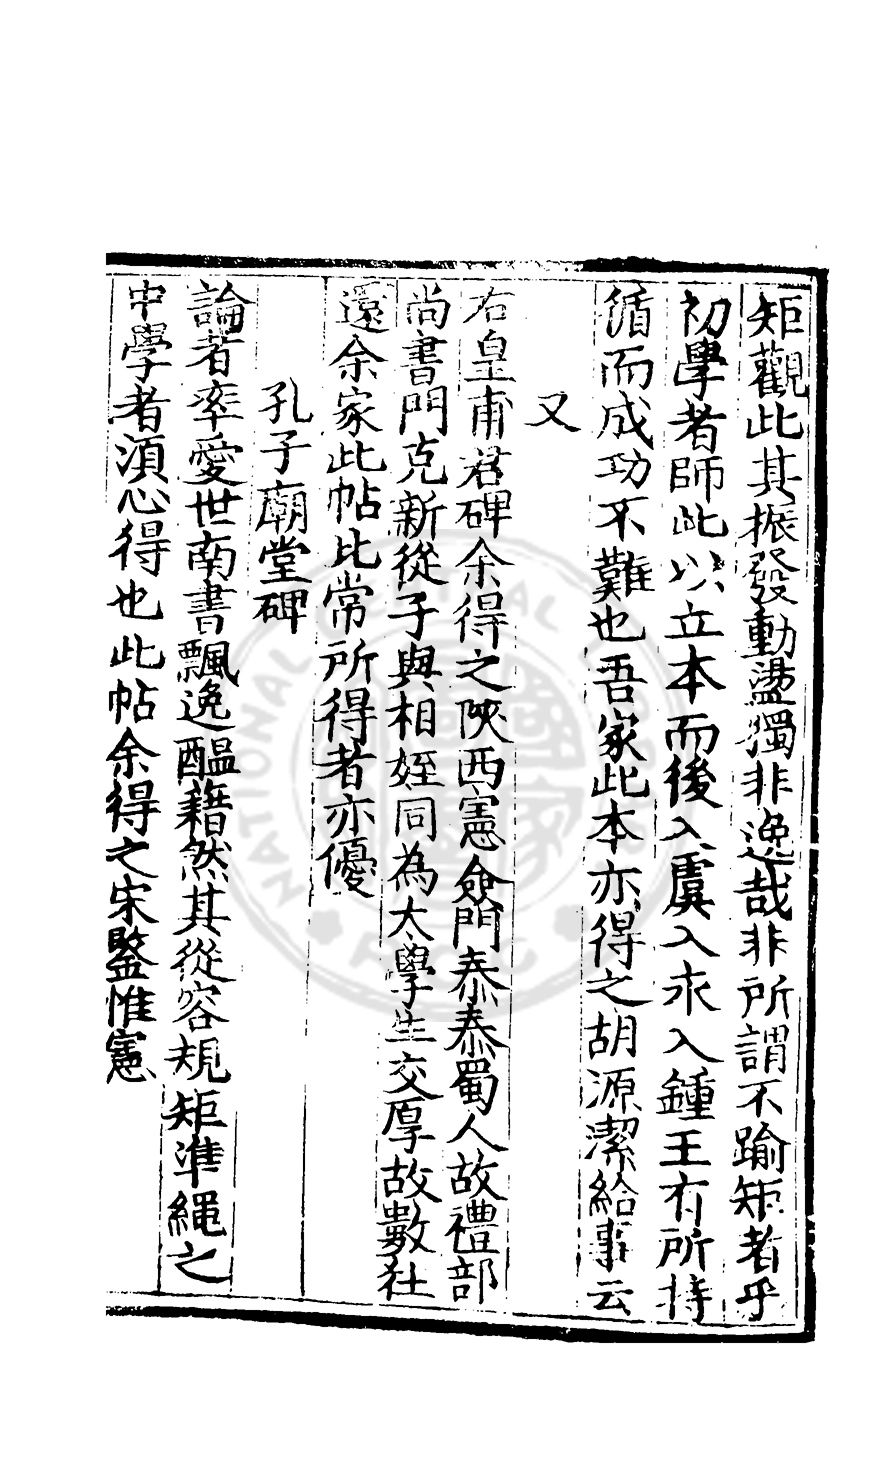 矩觀此其振發動盪獨非逸哉非所謂不踰矩者乎
初學者師此以立本而後入虞入永入鍾王有所持
循而成功不難也吾家此本亦得之胡源潔給事云
又
右皇甫君碑余得之陝西憲僉門泰泰蜀人故禮部
尚書門克新從子與相姪同為太學生交厚故數往
還余家此帖比常所得者亦優
孔子廟堂碑
論者率愛世南書飄逸醞藉然其從容規矩準繩之
中學者須心得也此帖余得之宋鑒惟憲
NATIONAL CENTRAL